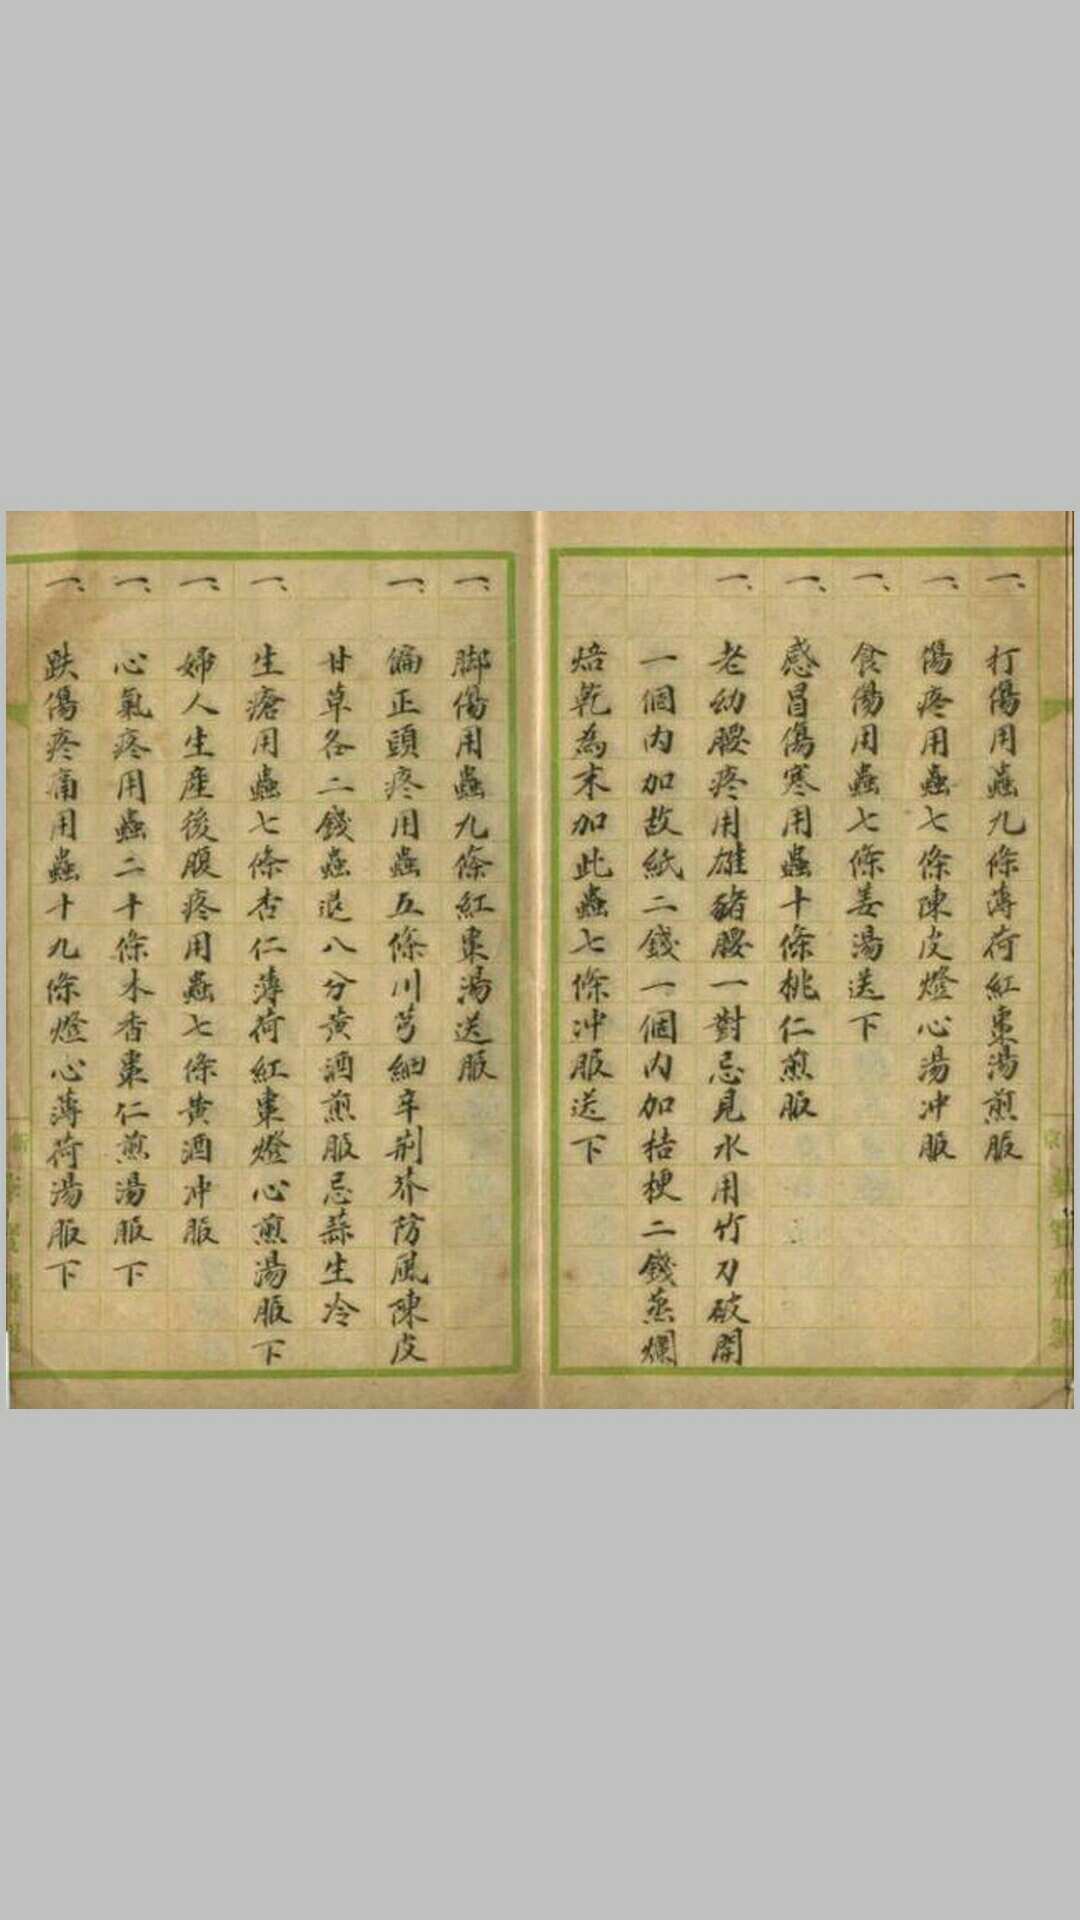 一、打傷用蟲九條薄荷紅棗湯煎服
一、傷疼用蟲七條陳皮燈心湯冲服
一、食傷用蟲七條姜湯送下
一、感冒傷寒用蟲十條桃仁煎服
一、老幼腰疼用雄豬腰一對忌見水用竹刀破開
一個內加故紙二錢一個內加桔梗二錢蒸爛
焙乾為末加此蟲七條冲服送下
一、脚傷用蟲九條紅棗湯送服
一、偏正頭疼用蟲五條川芎細辛荆芥防風陳皮
甘草各二錢蟲退八分黄酒煎服忌蒜生冷
一、生瘡用蟲七條杏仁薄荷紅棗燈心煎湯服下
一、婦人生產後腹疼用蟲七條黄酒冲服
一、心氣疼用蟲二十條木香棗仁煎湯服下
一、跌傷疼痛用蟲十九條燈心薄荷湯服下